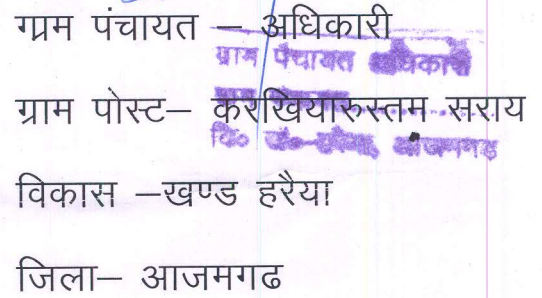 ग्राम पंचायत – अधिकारी
ग्राम पंचायत अधिकारी
ग्राम पोस्ट– करखियारुस्तम सराय
वि० ख०-हरैया, आजमगढ़
विकास –खण्ड हरैया
जिला– आजमगढ